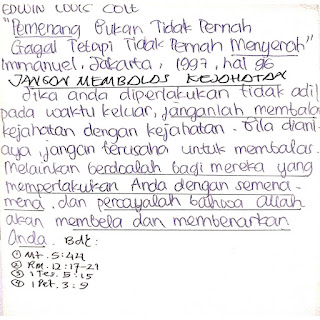 EDWIN LOUIS COLE
"Pemenang Bukan Tidak Pernah
Gagal Tetapi Tidak Pernah Menyerah"
Immanuel, Jakarta, 1997, hal 96
JANGAN MEMBALAS KEJAHATAN
Jika anda diperlakukan tidak adil
pada waktu keluar, janganlah membalas
kejahatan dengan kejahatan. Bila diani-
aya, jangan berusaha untuk membalas.
Melainkan berdoalah bagi mereka yang
memperlakukan Anda dengan semena-
mena, dan percayalah bahwa Allah
akan membela dan membenarkan
Anda. Bdk:
① Mt. 5:44
② Rm. 12:17-21
③ 1 Tes. 5:15
④ 1 Pet. 3:9